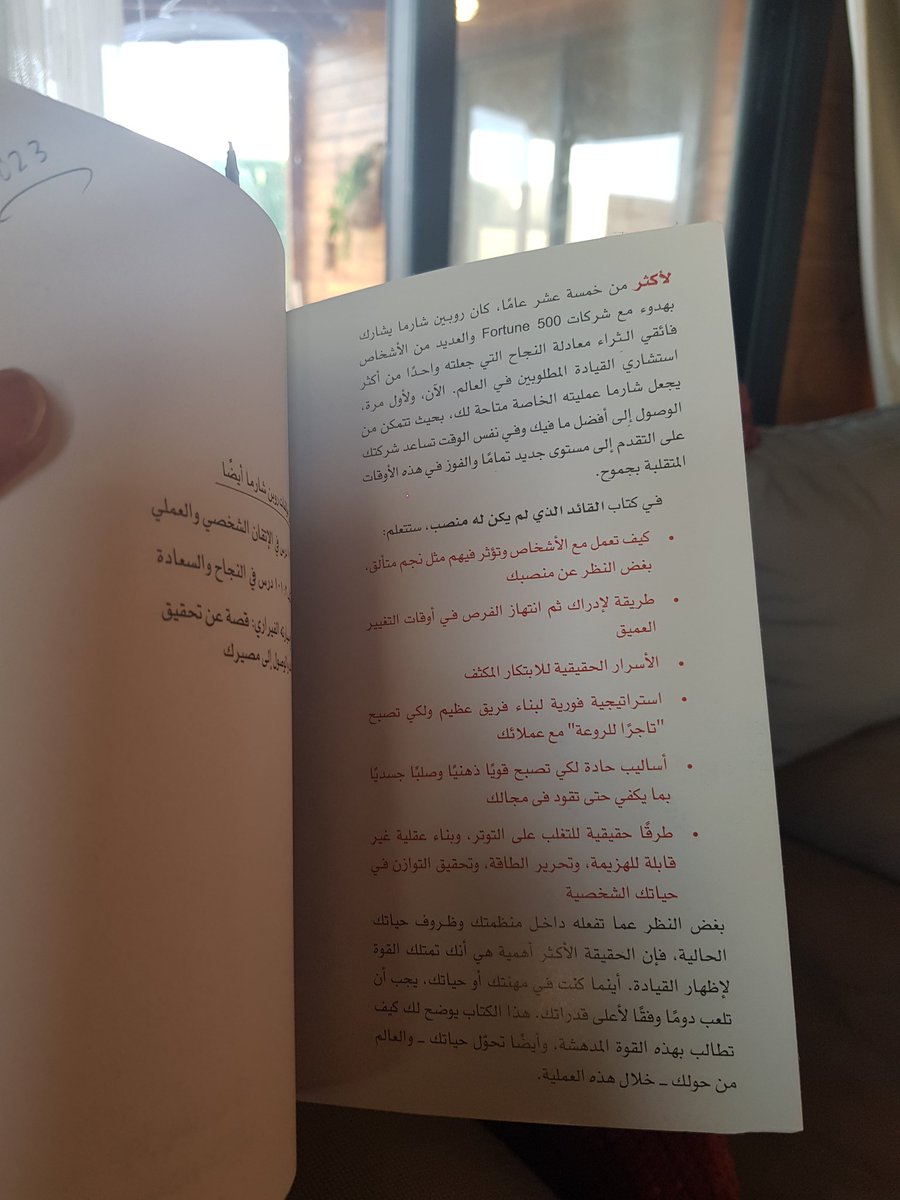 لأكثر من خمسة عشر عامًا، كان روبين شارما يشارك
بهدوء مع شركات Fortune 500 والعديد من الأشخاص
فائقي الثراء معادلة النجاح التي جعلته واحدًا من أكثر
استشاري القيادة المطلوبين في العالم. الآن، ولأول مرة،
يجعل شارما عمليته الخاصة متاحة لك، بحيث تتمكن من
الوصول إلى أفضل ما فيك وفي نفس الوقت تساعد شركتك
على التقدم إلى مستوى جديد تمامًا والفوز في هذه الأوقات
المتقلبة بجموح.
في كتاب القائد الذي لم يكن له منصب، ستتعلم:
• كيف تعمل مع الأشخاص وتؤثر فيهم مثل نجم متألق،
بغض النظر عن منصبك
• طريقة لإدراك ثم انتهاز الفرص في أوقات التغيير
العميق
• الأسرار الحقيقية للابتكار المكثف
• استراتيجية فورية لبناء فريق عظيم ولكي تصبح
"تاجرًا للروعة" مع عملائك
• أساليب حادة لكي تصبح قويًا ذهنيًا وصلبًا جسديًا
بما يكفي حتى تقود فى مجالك
• طرقًا حقيقية للتغلب على التوتر، وبناء عقلية غير
قابلة للهزيمة، وتحرير الطاقة، وتحقيق التوازن في
حياتك الشخصية
بغض النظر عما تفعله داخل منظمتك وظروف حياتك
الحالية، فإن الحقيقة الأكثر أهمية هي أنك تمتلك القوة
لإظهار القيادة. أينما كنت في مهنتك أو حياتك، يجب أن
تلعب دومًا وفقًا لأعلى قدراتك. هذا الكتاب يوضح لك كيف
تطالب بهذه القوة المدهشة، وأيضًا تحوّل حياتك ـ والعالم
من حولك ـ خلال هذه العملية.
023
روبن شارما أيضًا
في الإتقان الشخصي والعملي
درس في النجاح والسعادة
الفيراري: قصة عن تحقيق
إلى مصيرك